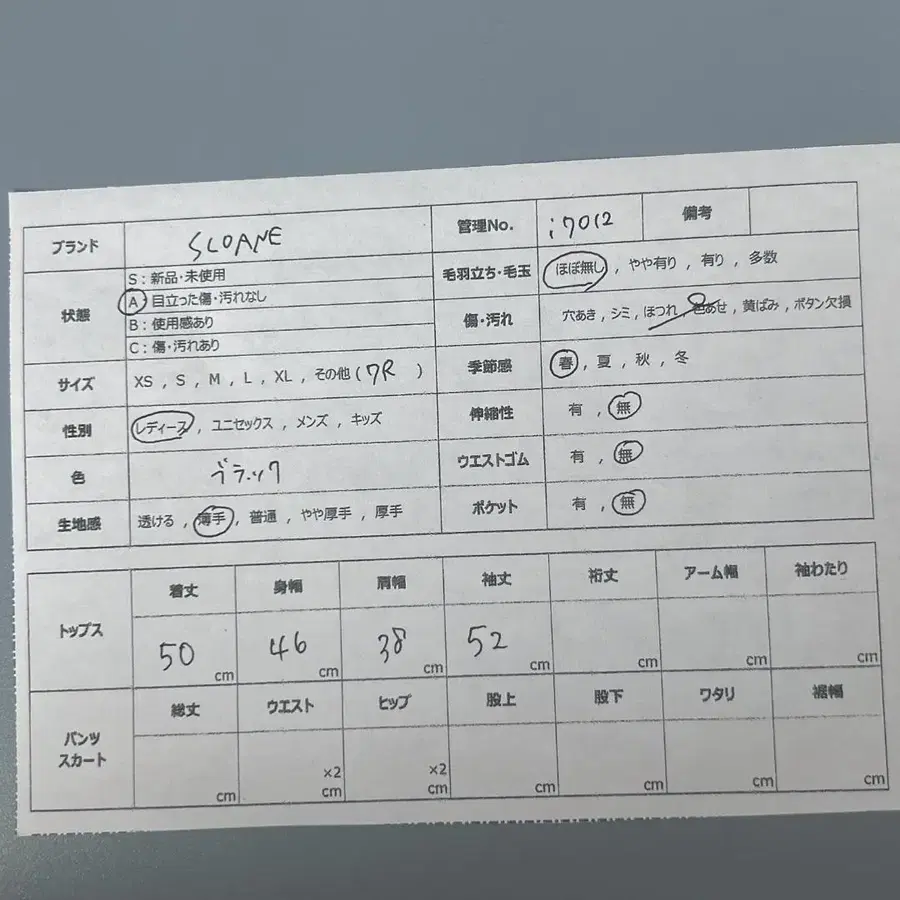 ブランド SLOANE 管理No. i7012 備考
状態 S：新品・未使用
A：目立った傷・汚れなし
B：使用感あり
C：傷・汚れあり
毛羽立ち・毛玉 ほぼ無し , やや有り , 有り , 多数
傷・汚れ 穴あき , シミ , ほつれ , 色あせ , 黄ばみ , ボタン欠損
サイズ XS , S , M , L , XL , その他 ( 7R )
季節感 春 , 夏 , 秋 , 冬
性別 レディース , ユニセックス , メンズ , キッズ
伸縮性 有 , 無
色 ブラック
ウエストゴム 有 , 無
生地感 透ける , 薄手 , 普通 , やや厚手 , 厚手
ポケット 有 , 無
トップス 着丈 身幅 肩幅 袖丈 裄丈 アーム幅 袖わたり
50 cm 46 cm 38 cm 52 cm cm cm cm
パンツ
スカート
総丈 ウエスト ヒップ 股上 股下 ワタリ 裾幅
×2 ×2
cm cm cm cm cm cm cm